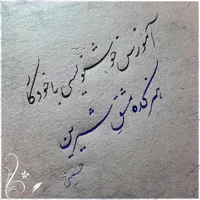 آموزش خوشنویسی با خودکار
هنرکده مشق شیرین
حسینی